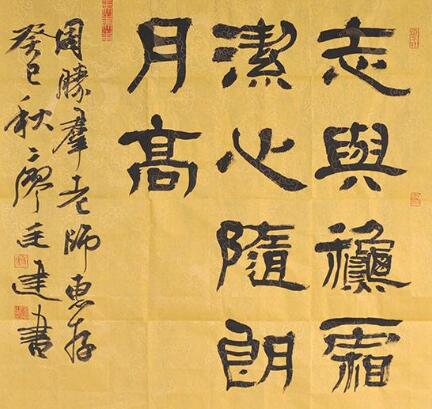 志與龝霜
潔心隨朗
月高
周勝羣老師惠存
癸巳秋廖建書